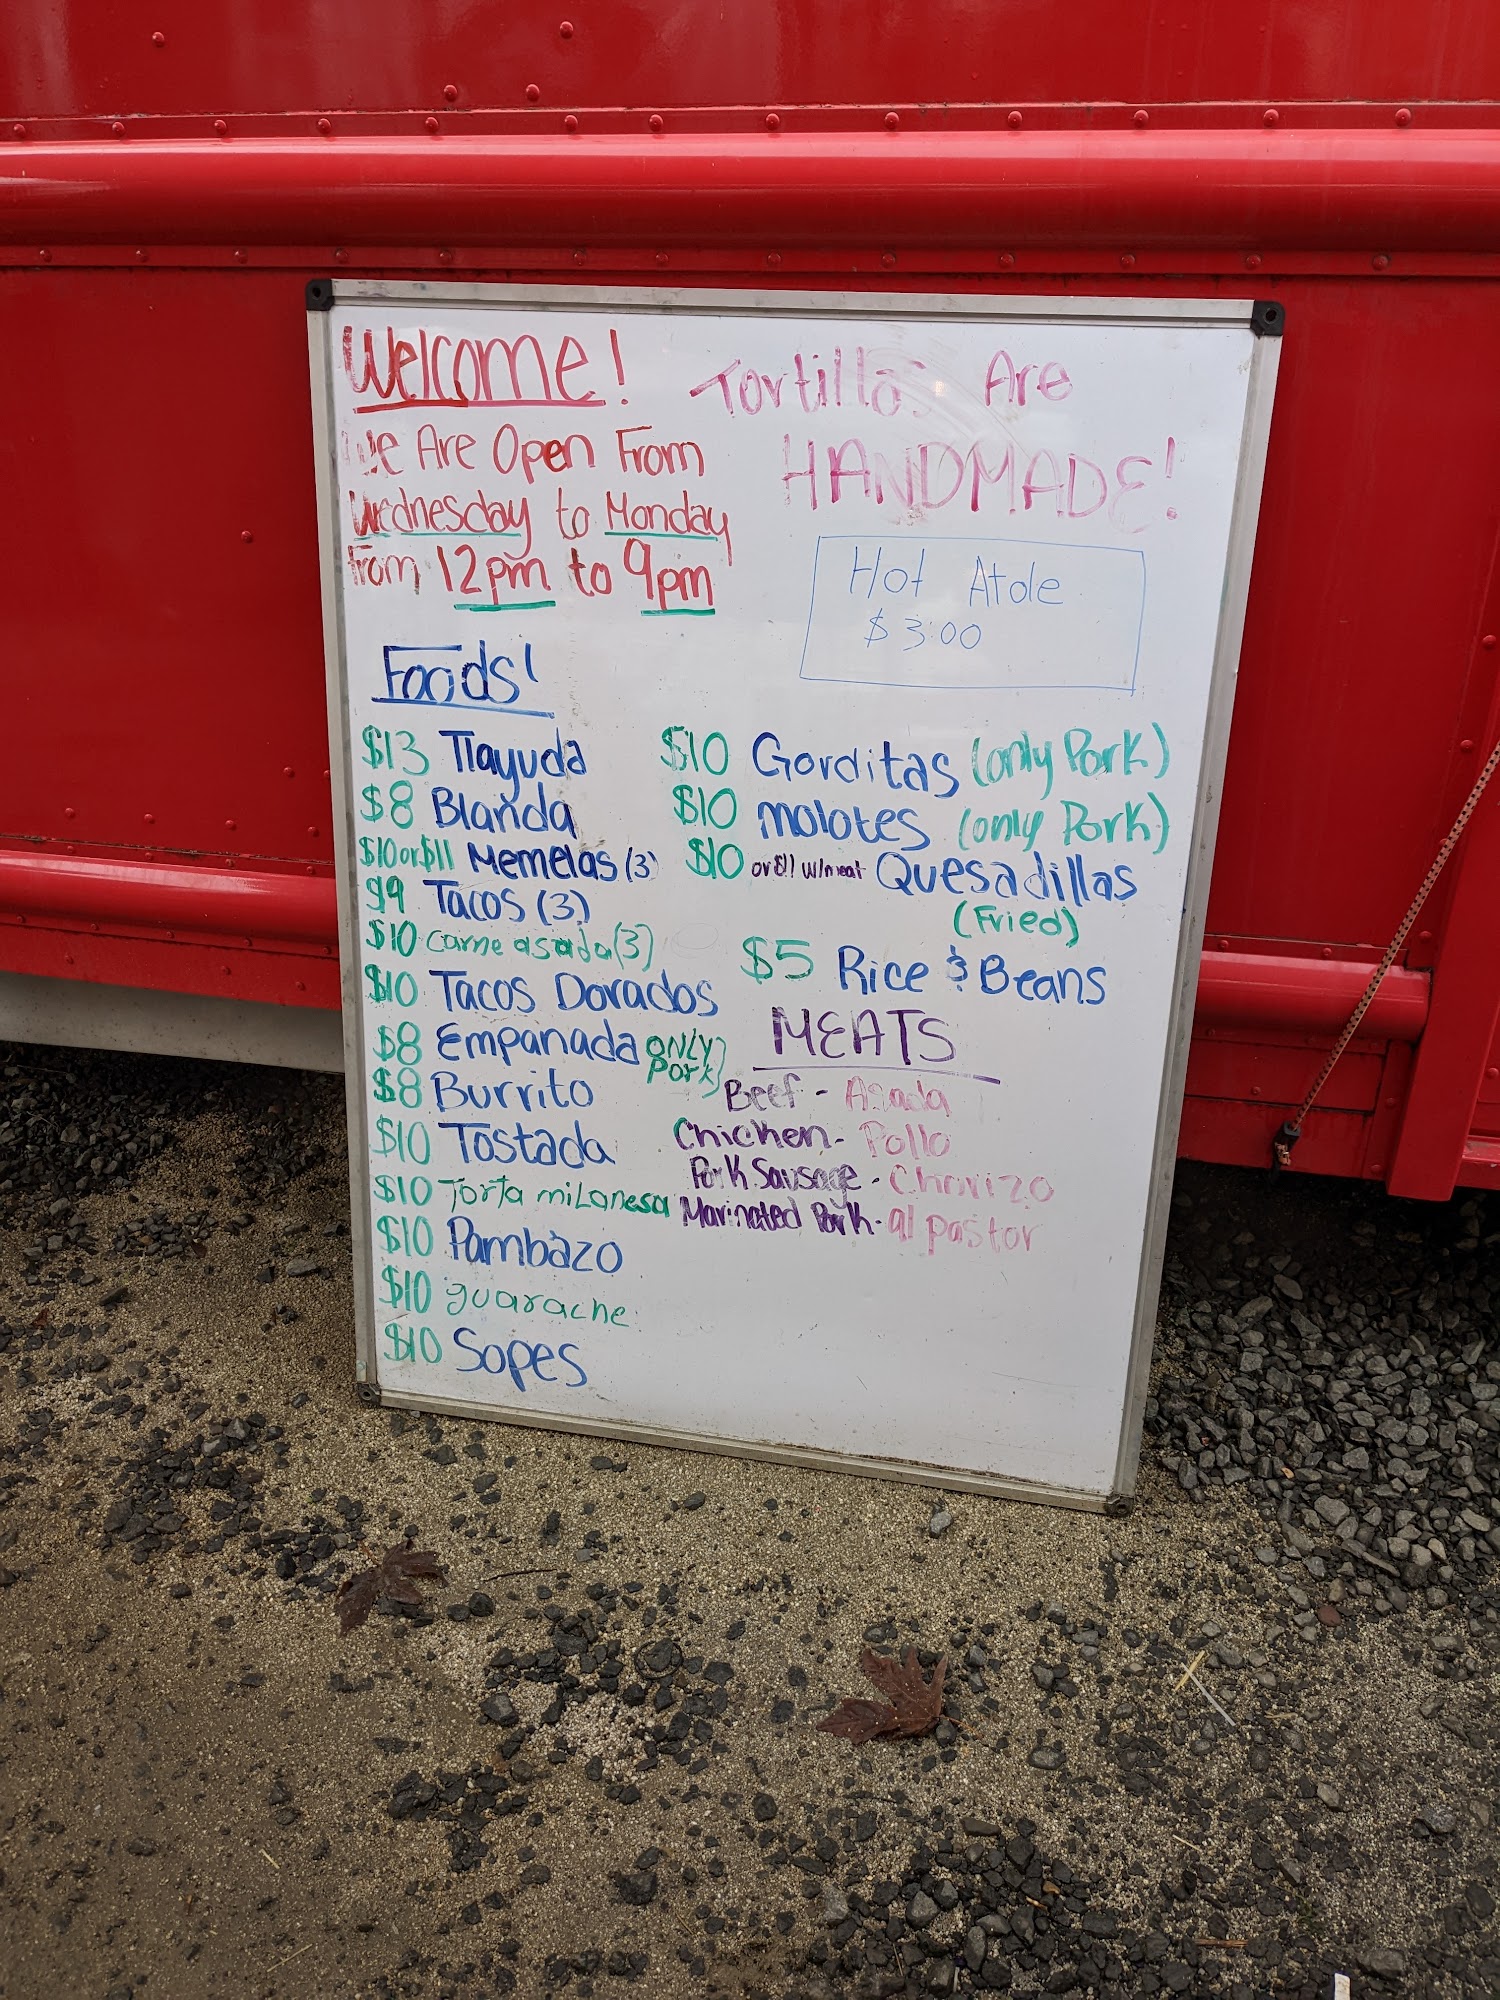 Welcome!
We Are Open From
Wednesday to Monday
From 12pm to 9pm
Tortillas Are
HANDMADE!
Hot Atole
$3.00
Foods!
$13 Tlayuda
$8 Blanda
$10 or $11 Memelas (3)
$9 Tacos (3)
$10 carne asada (3)
$10 Tacos Dorados
$8 Empanada ONLY Pork)
$8 Burrito
$10 Tostada
$10 Torta milanesa
$10 Pambazo
$10 guarache
$10 Sopes
$10 Gorditas (only Pork)
$10 Molotes (only Pork)
$10 or $11 w/meat Quesadillas
(Fried)
$5 Rice & Beans
MEATS
Beef - Asada
Chicken - Pollo
Pork Sausage - Chorizo
Marinated Pork - al pastor